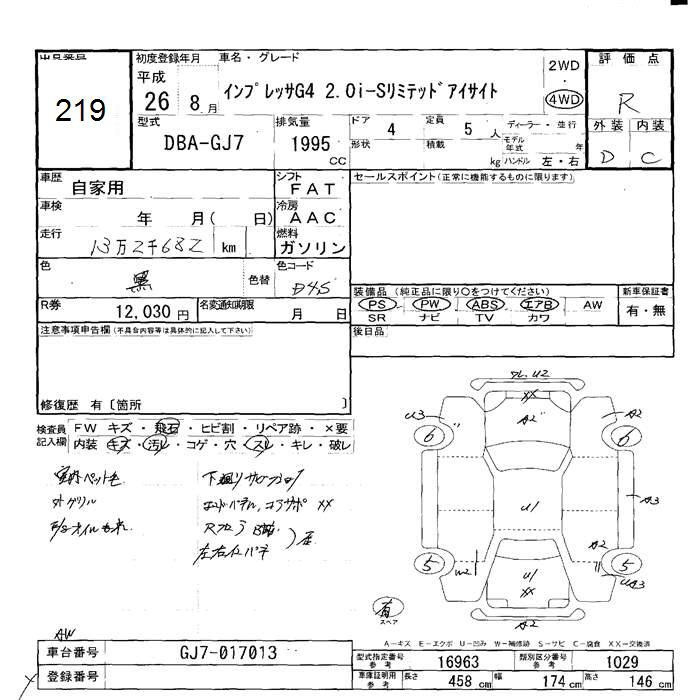 出品番号
219
初度登録年月 車名・グレード
平成
26 8月
インプレッサG4 2.0i-Sリミテッドアイサイト
2WD
4WD
評価点
R
外装 内装
D C
型式
DBA-GJ7
排気量
1995
CC
ドア 4 定員 5 人
形状 積載 kg
ディーラー・並行
モデル年式 年
ハンドル 左・右
車歴 自家用
シフト FAT
車検 年 月( 日)
冷房 AAC
走行 13万2千682 km
燃料 ガソリン
色 黒 色替
色コード D4S
R券 12,030 円
名変通知期限 月 日
セールスポイント(正常に機能するものに限ります)
装備品 (純正品に限り○をつけてください)
PS PW ABS エアB AW
SR ナビ TV カワ
新車保証書
有・無
後日品
注意事項申告欄(不具合内容等は具体的に記入して下さい)
修復歴 有〔箇所 〕
検査員記入欄
FW キズ・飛石・ヒビ割・リペア跡・×要
内装 キズ・汚レ・コゲ・穴・スレ・キレ・破レ
外グリル
AW
U2
XX
A2
U3
A2
6
6
U1
A3
A2
5
5
U1
XX
A3
A2
有
スペア
A-キズ E-エクボ U-凹み W-補修跡 S-サビ C-腐食 XX-交換済
車台番号 GJ7-017013
登録番号
型式指定番号 参考 16963 類別区分番号 参考 1029
車庫証明用 参考 長さ 458 cm 幅 174 cm 高さ 146 cm